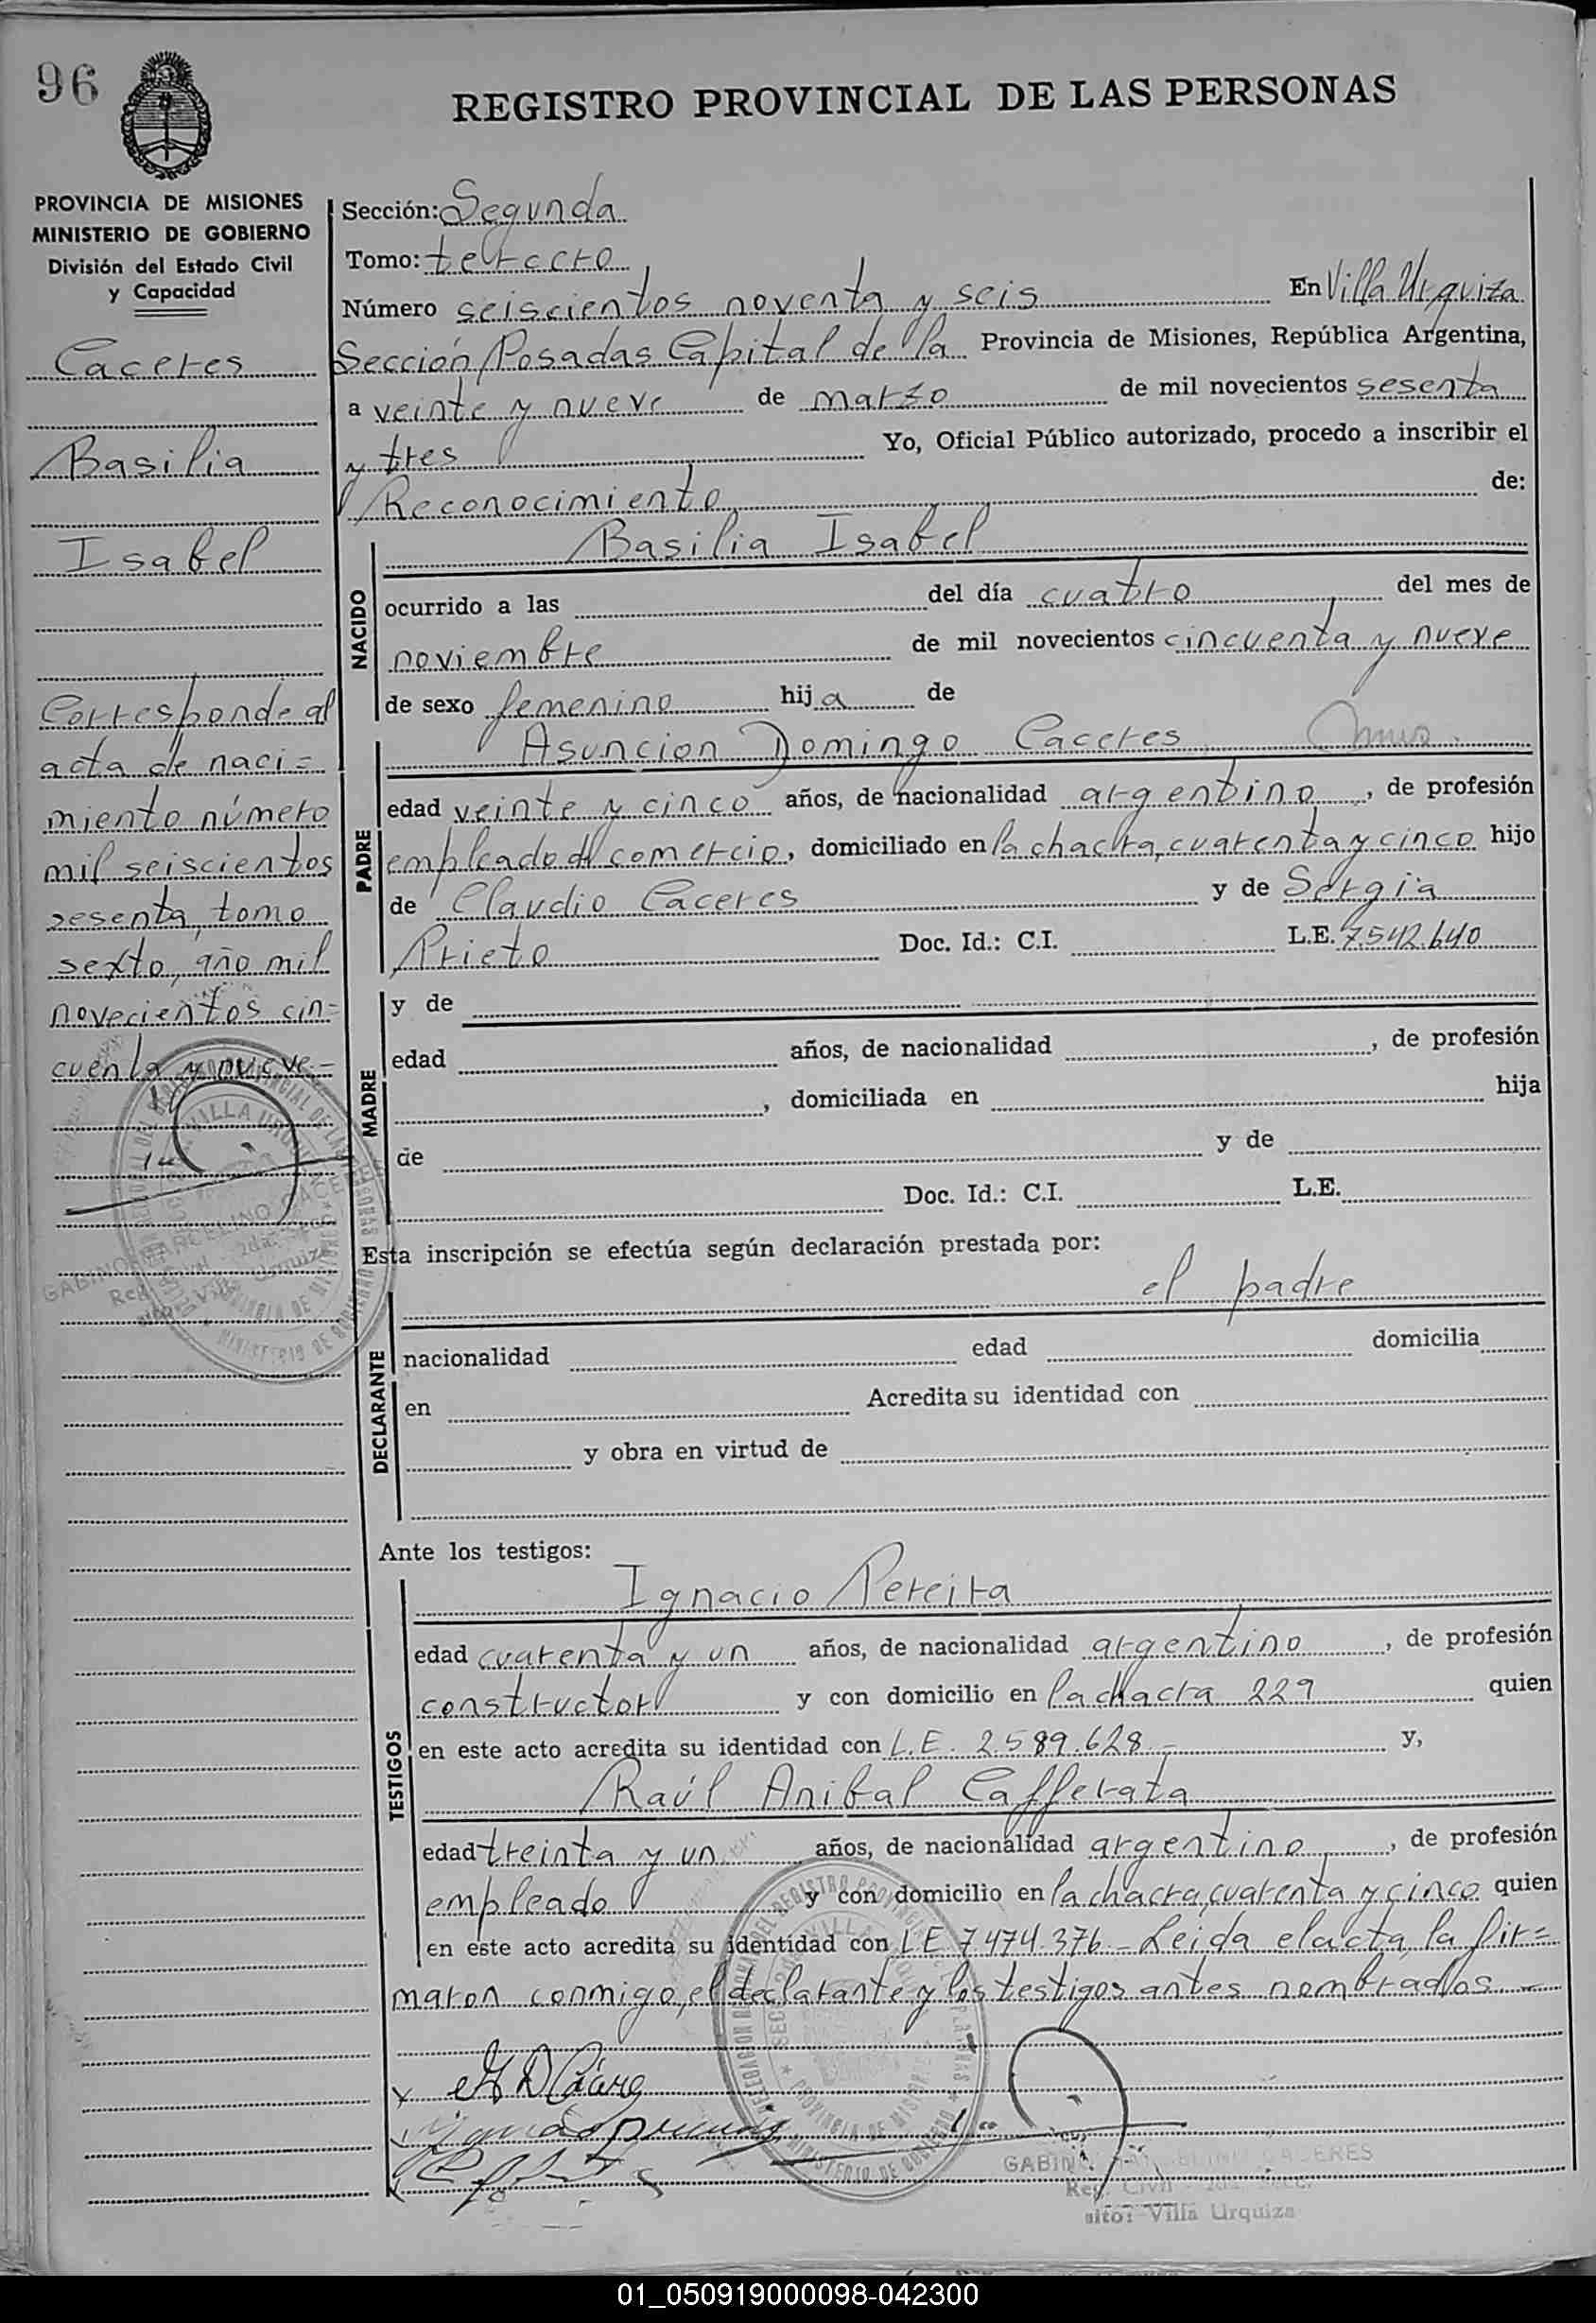 96
REGISTRO PROVINCIAL DE LAS PERSONAS
PROVINCIA DE MISIONES
MINISTERIO DE GOBIERNO
División del Estado Civil
y Capacidad
Caceres
Basilia
Isabel
Corresponde al
acta de naci=
miento número
mil seiscientos
sesenta, tomo
sexto, año mil
novecientos cin=
cuenta y nueve.=
Sección: Segunda
Tomo: tercero
Número seiscientos noventa y seis En Villa Urquiza
Sección Posadas Capital de la Provincia de Misiones, República Argentina,
a veinte y nueve de marzo de mil novecientos sesenta
y tres Yo, Oficial Público autorizado, procedo a inscribir el
Reconocimiento de:
NACIDO
Basilia Isabel
ocurrido a las del día cuatro del mes de
noviembre de mil novecientos cincuenta y nueve
de sexo femenino hija de
PADRE
Asuncion Domingo Caceres
edad veinte y cinco años, de nacionalidad argentino, de profesión
empleado de comercio, domiciliado en la chacra, cuarenta y cinco hijo
de Claudio Caceres y de Sergia
Prieto Doc. Id.: C.I. L.E. 7.542.640
MADRE
y de
edad años, de nacionalidad , de profesión
, domiciliada en hija
de y de
Doc. Id.: C.I. L.E.
Esta inscripción se efectúa según declaración prestada por:
el padre
DECLARANTE
nacionalidad edad domicilia
en Acredita su identidad con
y obra en virtud de
Ante los testigos:
TESTIGOS
Ignacio Pereira
edad cuarenta y un años, de nacionalidad argentino, de profesión
constructor y con domicilio en la chacra 229 quien
en este acto acredita su identidad con L.E. 2.589.628.- y,
Raúl Anibal Cafferata
edad treinta y un años, de nacionalidad argentino, de profesión
empleado y con domicilio en la chacra, cuarenta y cinco quien
en este acto acredita su identidad con LE 7.474.376.- Leida el acta, la fir=
maron conmigo, el declarante y los testigos antes nombrados.-
GABINO CACERES
Reg. Civil 2da. Secc.
Villa Urquiza
01_050919000098-042300